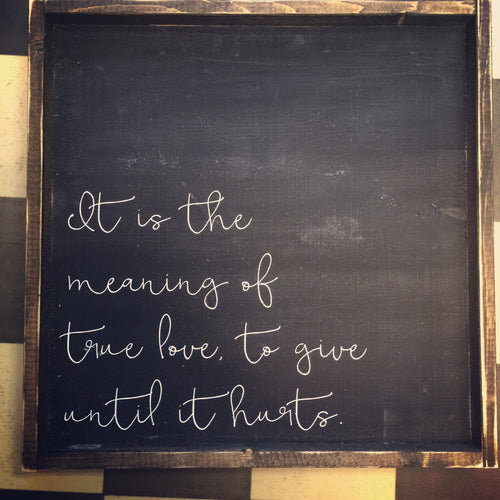 It is the
meaning of
true love, to give
until it hurts.